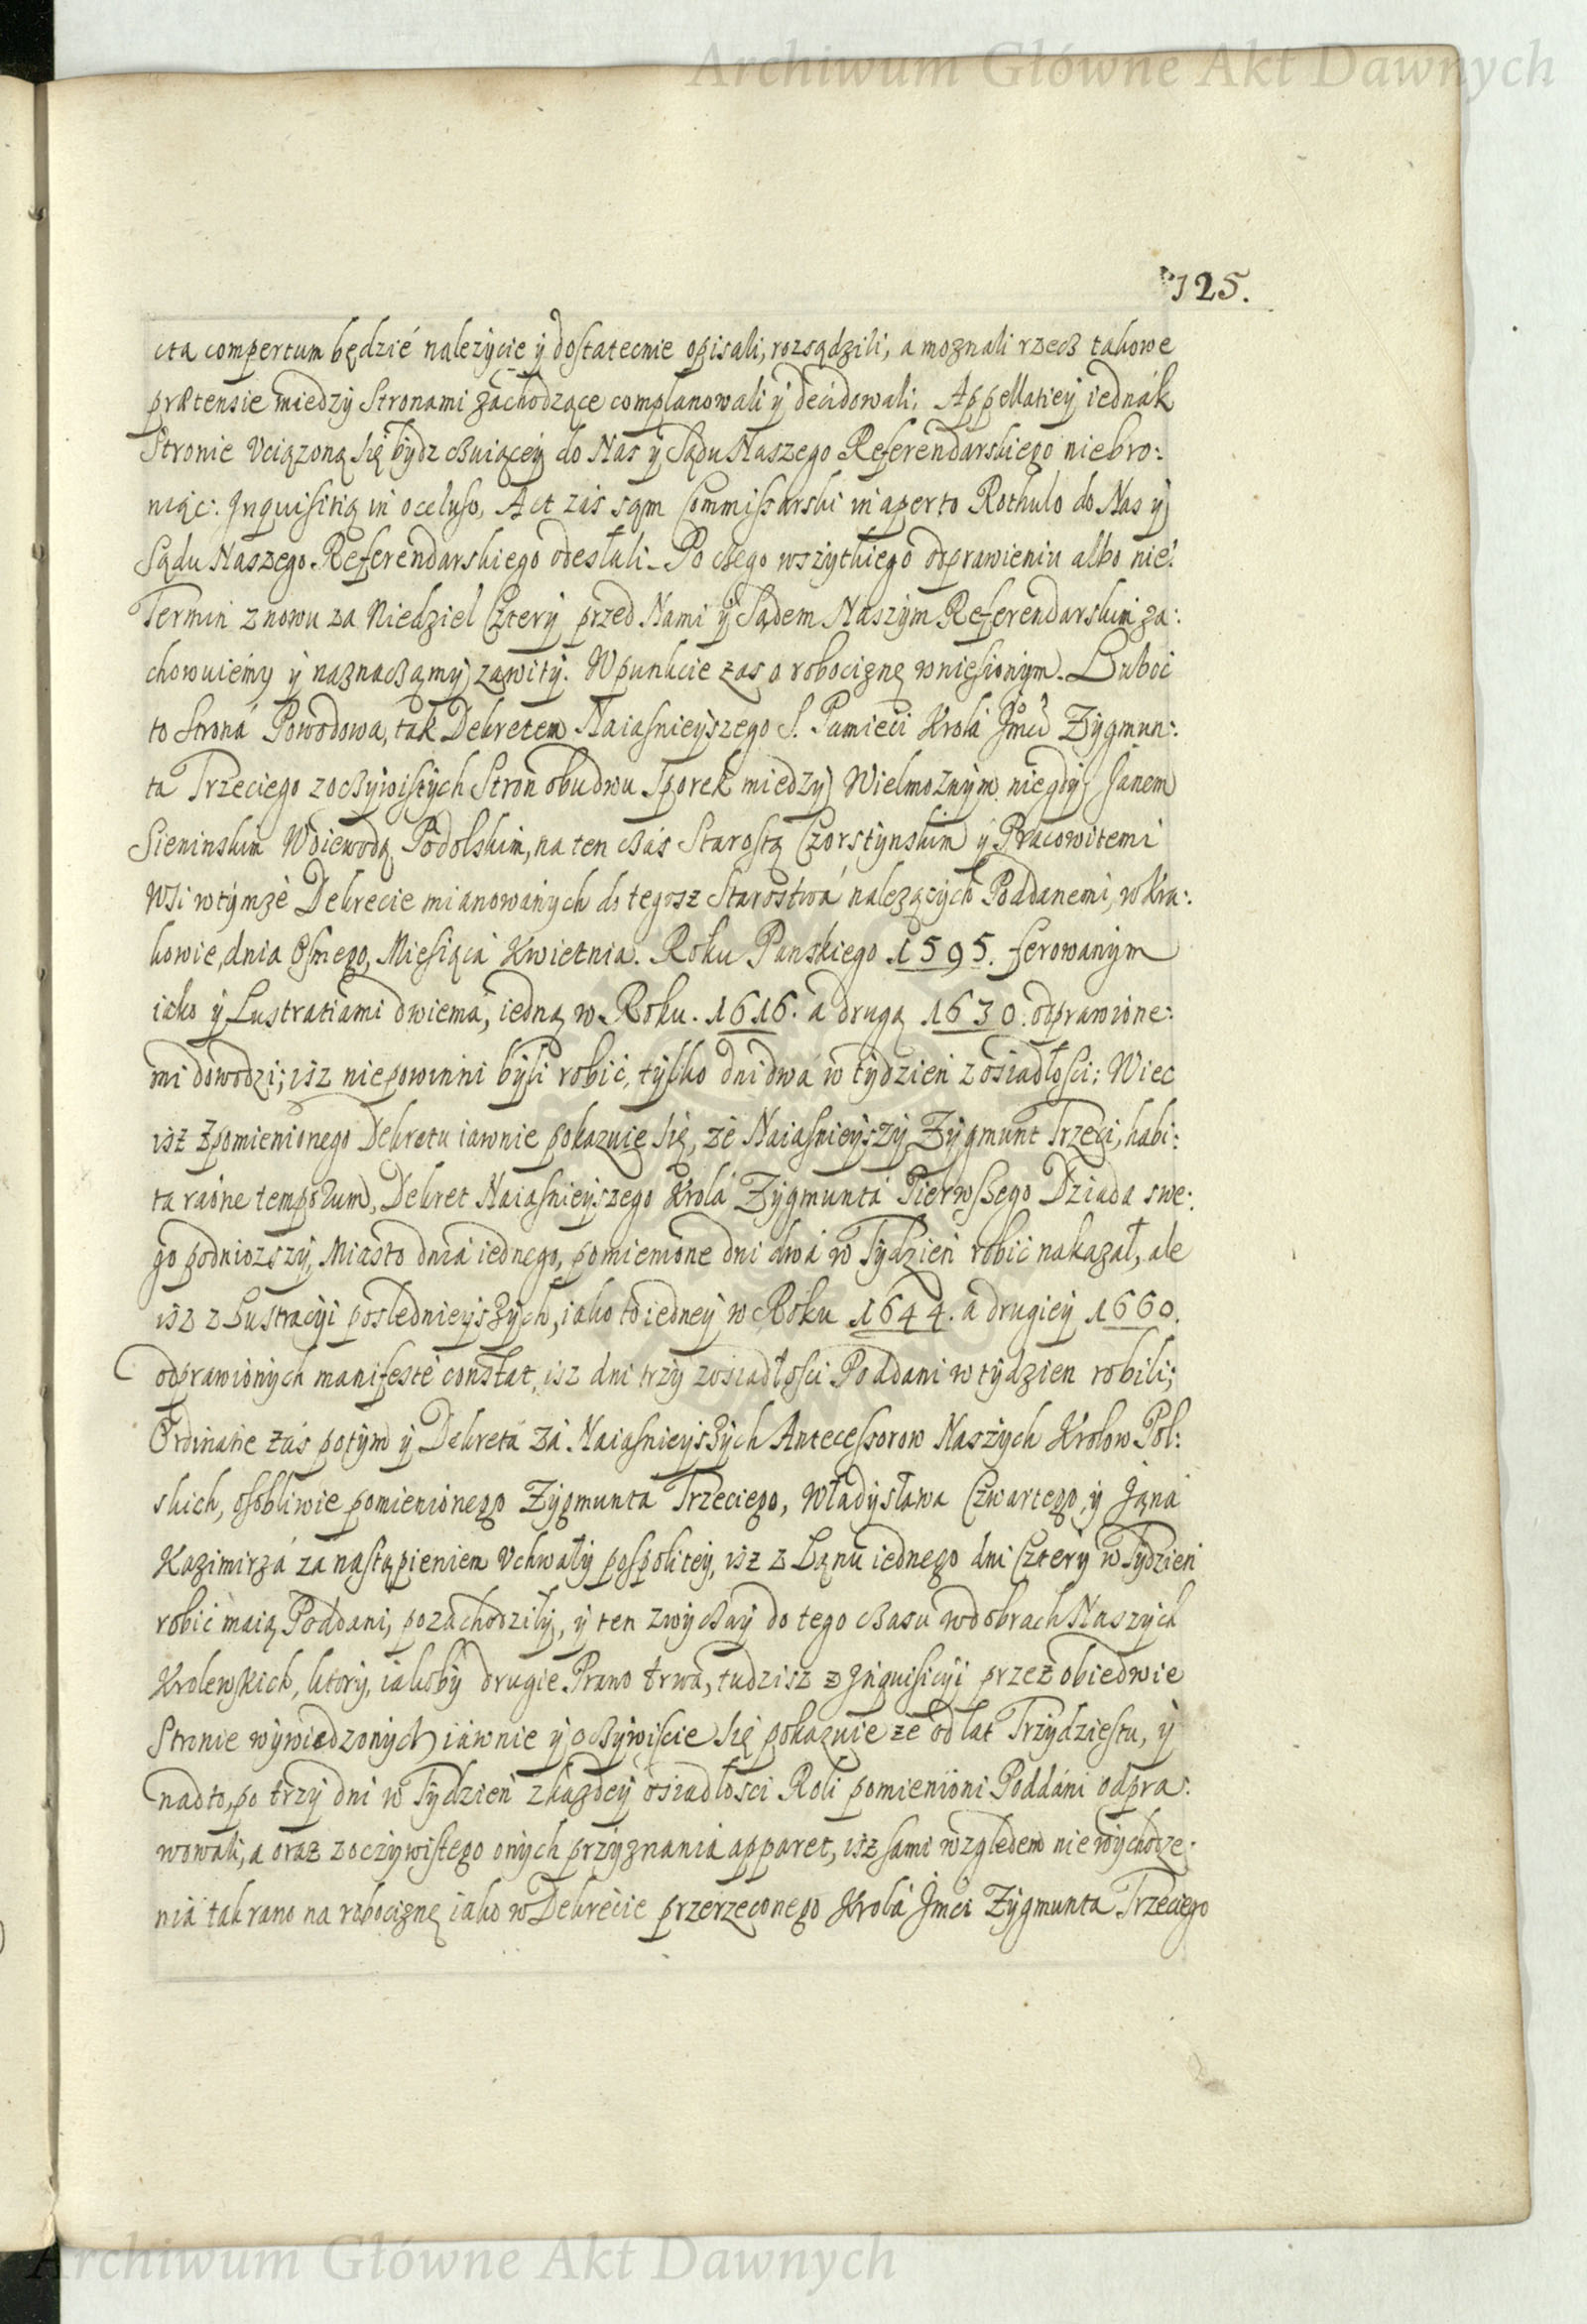 Archiwum Główne Akt Dawnych
125.
cta compertum będzie należycie y dostatecnie opisali, rozsądzili, a moznali rzecz takowe
prætensie miedzy Stronami zachodzące complanowali y decidowali. Appellatiey iednak
Stronie Vciązoną się bydz czuiącey do Nas y Sądu Naszego Referendarskiego niebro:
niąc: Inquisitią in occluso, Act zas sąm Commissarski in aperto Rothulo do Nas y
Sądu Naszego Referendarskiego odesłali_ Po czego wszytkiego odprawieniu albo nie:
Termin znowu za Niedziel Cztery przed Nami y Sądem Naszym Referendarskim za:
chowuiemy y naznaczamy zawity. W punkcie zas o robociznę wniesionym. Luboć
to Strona Powodowa, tak Dekretem Naiasnieyszego S. Pamieci Krola Jmci Zygmun:
ta Trzeciego zoczywistych Stron obudwu Sporek miedzy Wielmoznym niegdy Janem
Sieninskim Woiewodą Podolskim, na ten czas Starostą Czorstynskim y Pracowitemi
Wsi wtymze Dekrecie mianowanych do tegosz Starostwa nalezących Poddanemi, w Kra:
kowie, dnia Osmego, Miesiąca Kwietnia. Roku Panskiego 1595. ferowanym
iako y Lustratiami dwiema, iedną w Roku. 1616. a drugą 1630. odprawione:
mi dowodzi; isz niepowinni byli robić, tylko dni dwa w tydzien z osiadłosci: Wiec
isz zpomienionego Dekretu iawnie pokazuie się, ze Naiasnieyszy Zygmunt Trzeci, habi:
ta raone temporum, Dekret Naiasnieyszego Krola Zygmunta Pierwszego Dziada swe:
go podniozszy, Miasto dnia iednego, pomienione dni dwa w Tydzien robić nakazał, ale
isz z Lustracyi poslednieyszych, iako to iedney w Roku 1644. a drugiey 1660.
odprawionych manifeste constat, isz dni trzy zosiadłosci Poddani w tydzien robili;
Ordinatie zas potym y Dekreta za Naiasnieyszych Antecessorow Naszych Krolow Pol:
skich, osobliwie pomienionego Zygmunta Trzeciego, Władysława Czwartego, y Jana
Kazimirza za nastąpieniem Vchwały pospolitey, isz z Łanu iednego dni Cztery w Tydzien
robić maią Poddani, pozachodziły, y ten zwyczay do tego czasu wdobrach Naszych
Krolewskich, ktory, iakoby drugie Prawo trwa, tudzisz z Inquisicyi przez obiedwie
Stronie wywiedzonych iawnie y oczywiscie się pokazuie ze od lat Trzydziestu, y
nadto, po trzy dni w Tydzien zkazdey osiadłosci Roli pomienioni Poddani odpra:
wowali, a oraz zoczywistego onych przyznania apparet, isz sami względem nie wychodze:
nia tak rano na robociznę iako w Dekrecie przerzeconego Krola Jmci Zygmunta Trzeciego
Archiwum Główne Akt Dawnych